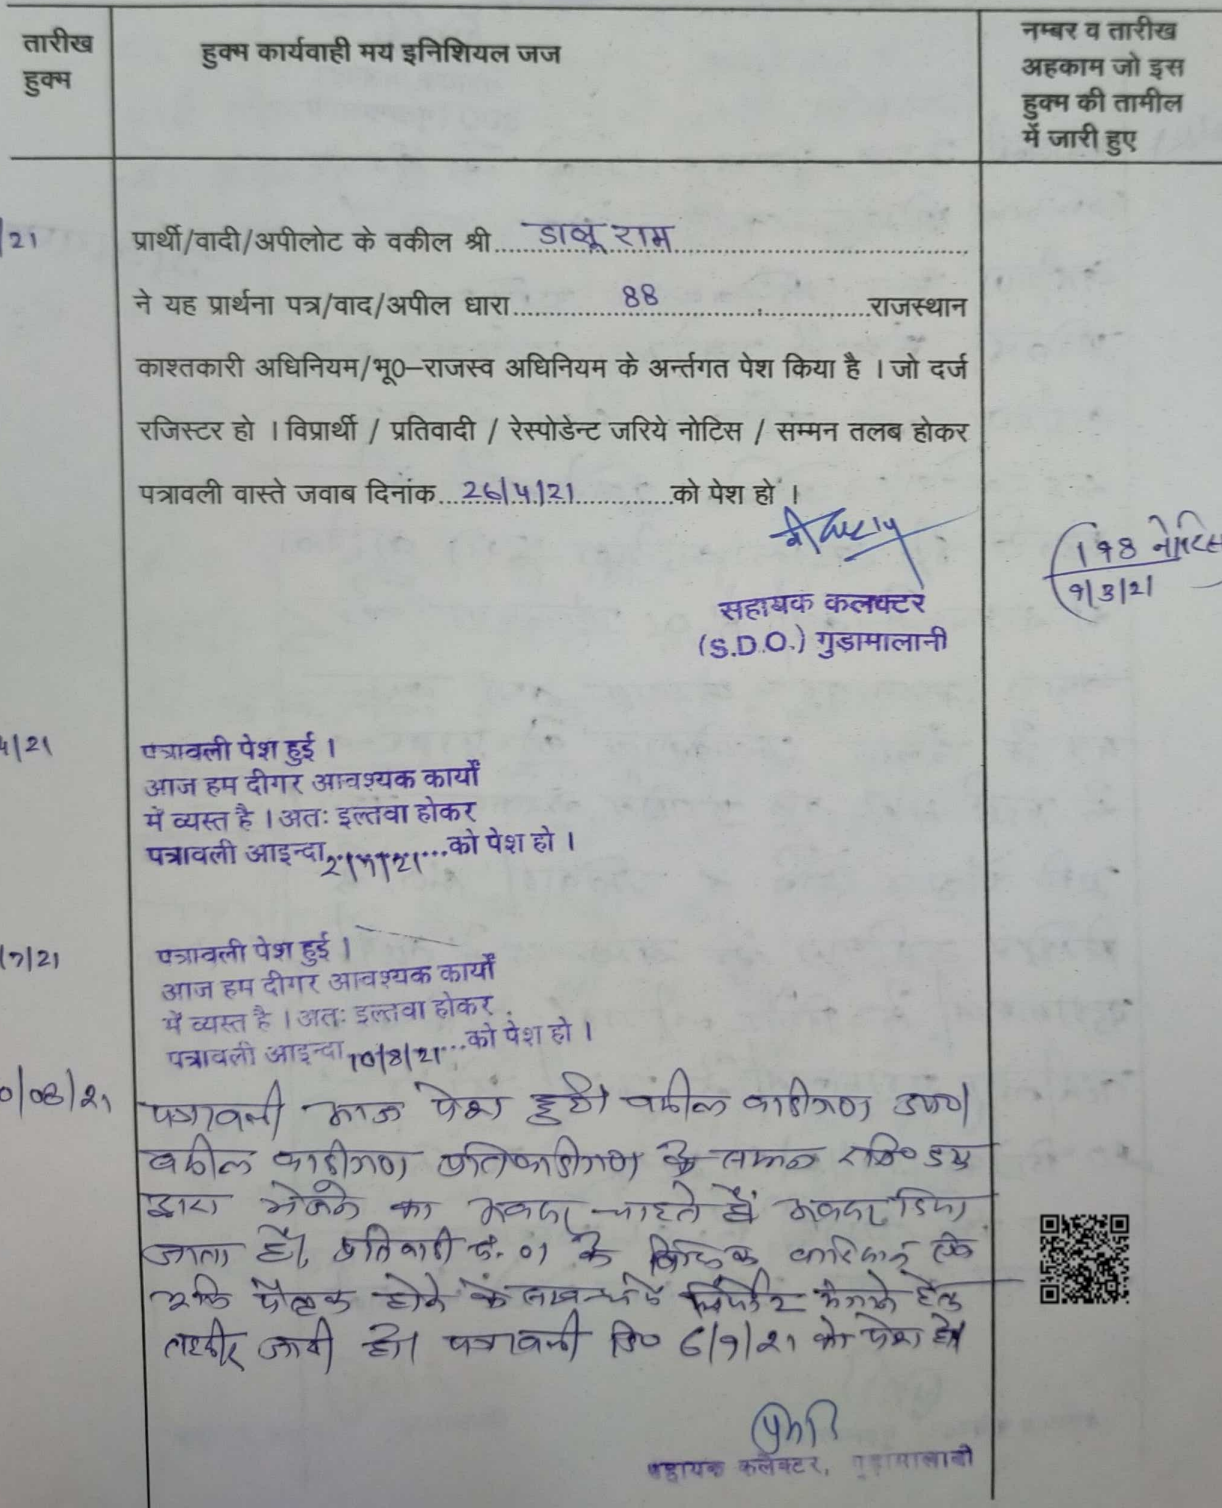 तारीख
हुक्म
हुक्म कार्यवाही मय इनिशियल जज
नम्बर व तारीख
अहकाम जो इस
हुक्म की तामील
में जारी हुए
21
प्रार्थी/वादी/अपीलोट के वकील श्री.....डालू राम.....
ने यह प्रार्थना पत्र/वाद/अपील धारा.....88.....राजस्थान
काश्तकारी अधिनियम/भू0–राजस्व अधिनियम के अर्न्तगत पेश किया है । जो दर्ज
रजिस्टर हो । विप्रार्थी / प्रतिवादी / रेस्पोडेन्ट जरिये नोटिस / सम्मन तलब होकर
पत्रावली वास्ते जवाब दिनांक...26/4/21.....को पेश हो ।
198 नोटिस
9/3/21
सहायक कलक्टर
(S.D.O.) गुड़ामालानी
4/21
पत्रावली पेश हुई ।
आज हम दीगर आवश्यक कार्यों
में व्यस्त है । अतः इल्तवा होकर
पत्रावली आइन्दा 2/7/21...को पेश हो ।
/7/21
पत्रावली पेश हुई ।
आज हम दीगर आवश्यक कार्यों
में व्यस्त है । अतः इल्तवा होकर
पत्रावली आइन्दा 10/8/21...को पेश हो ।
0/08/21
पत्रावली आज पेश हुई। वकील वादीगण उप0।
वकील वादीगण प्रतिवादीगण के सम्मन रजि० डाक
द्वारा भेजने का अवसर चाहते हैं अवसर दिया
जाता है। प्रतिवादी सं. 01 के
होने के सम्बन्ध में रिपोर्ट मंगाने हेतु
तहरीर जारी हो। पत्रावली दि० 6/9/21 को पेश हो
सहायक कलेक्टर, गुड़ामालानी